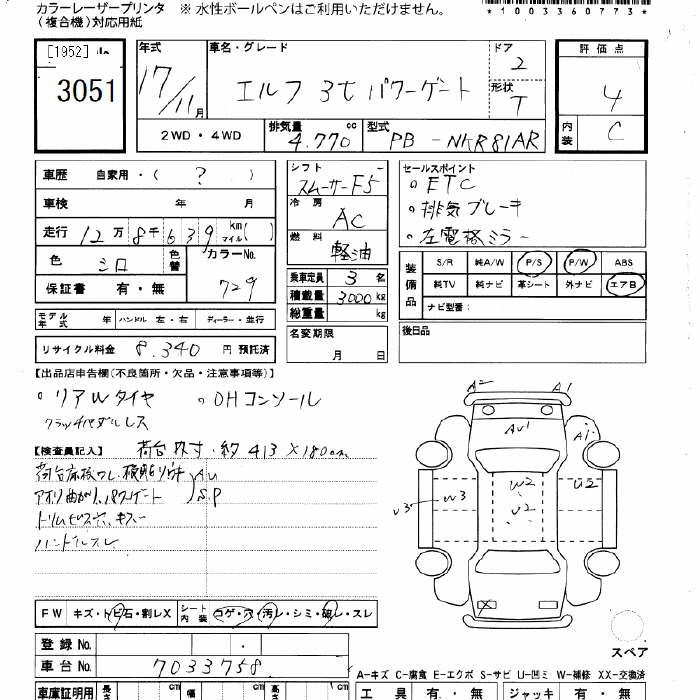 カラーレーザープリンタ ※ 水性ボールペンはご利用いただけません。
(複合機)対応用紙
*1003360773*
[1952]
3051
年式 17/11月
車名・グレード エルフ 3t パワーゲート
ドア 2
形状 T
評価点 4
内装 C
2WD・4WD
排気量 4.770 cc
型式 PB-NKR81AR
車歴 自家用・( ? )
車検 年 月
走行 12万8千639 km マイル( )
色 シロ 色替 カラーNo. 729
保証書 有・無
モデル年式 年 ハンドル 左・右 ディーラー・並行
リサイクル料金 8.340 円 預託済
シフト スムーサーF5
冷房 AC
燃料 軽油
乗車定員 3 名
積載量 3000 kg
総重量 kg
名変期限 月 日
セールスポイント
。ETC
。排気ブレーキ
。左電格ミラー
装備品 S/R 純A/W P/S P/W ABS
純TV 純ナビ 革シート 外ナビ エアB
ナビ型番:
後日品
【出品店申告欄(不良箇所・欠品・注意事項等)】
。リアWタイヤ 。OHコンソール
クラッチペダルレス
【検査員記入】 荷台外寸・約 413×180cm
アオリ曲がり、パワーゲート S.P
トリムビス穴、キズ
ハンドルスレ
A2 A1
AU1
A1
U3 W3 W2 U2
U2
X
FW キズ・トビ石・割レX シート内装 コゲ・穴・汚レ・シミ・破レ・スレ
スペア
登録No.
車台No. 7033758
A-キズ C-腐食 E-エクボ S-サビ U-凹ミ W-補修 XX-交換済
車庫証明用 長さ cm 幅 cm 高さ cm
工具 有・無 ジャッキ 有・無